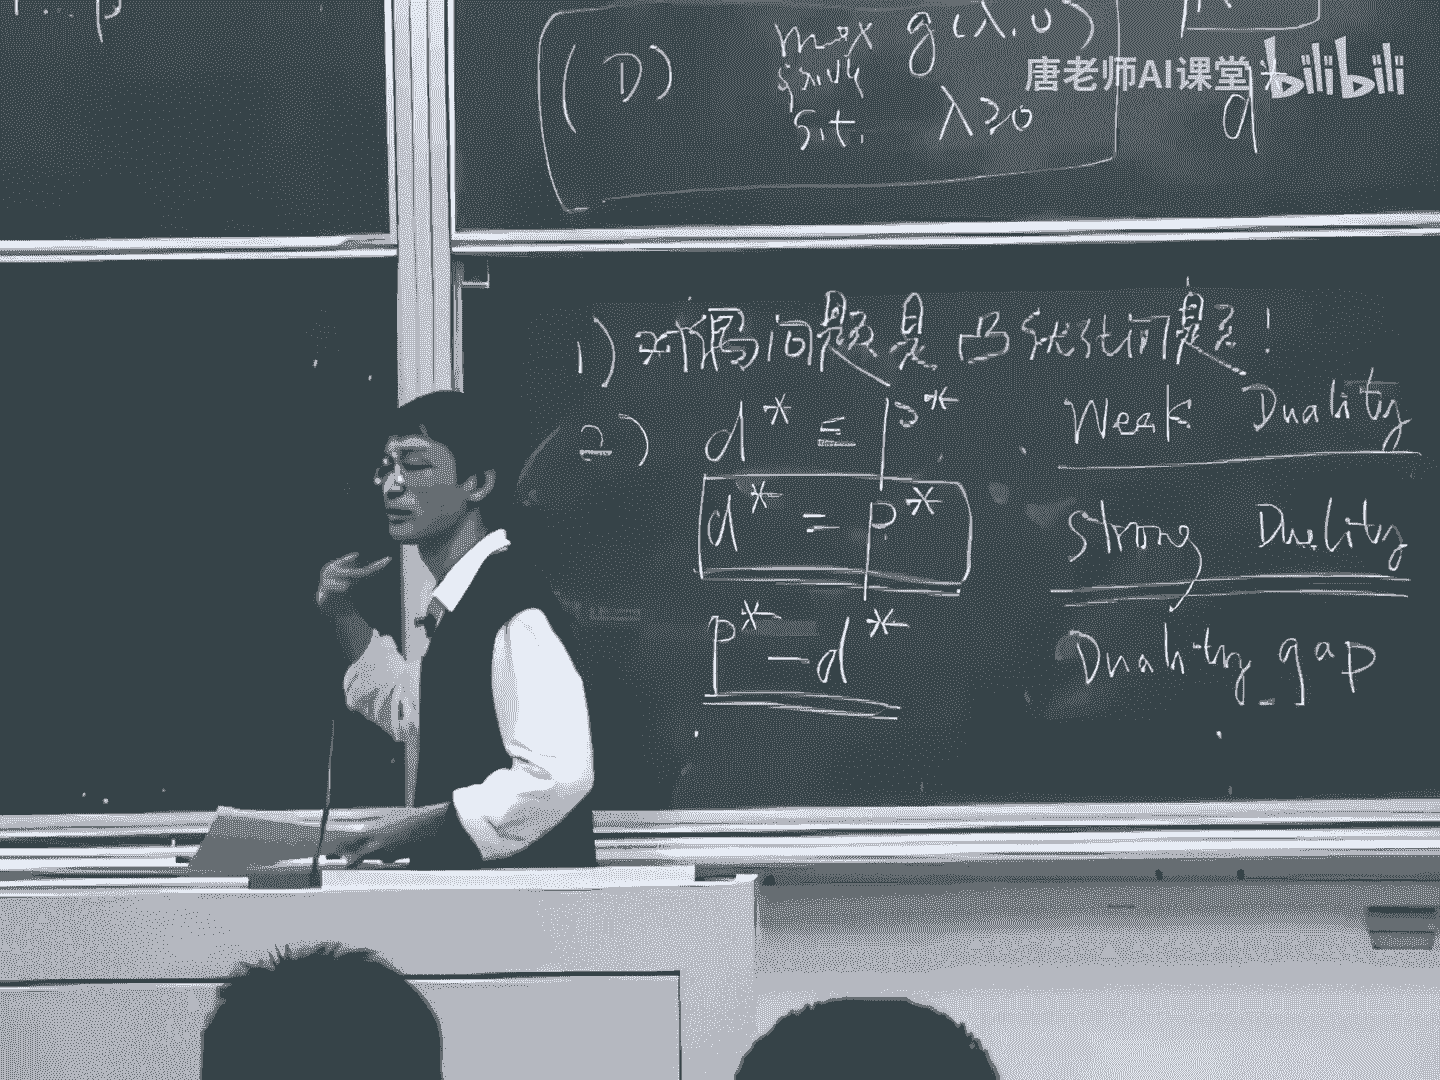 (D) max g(λ,υ)
s.t. λ≥0
d*
唐老师AI课堂 bilibili
1) 对偶问题是凸优化问题!
2) d* ≤ P* Weak Duality
d* = P* Strong Duality
P* - d* Duality gap